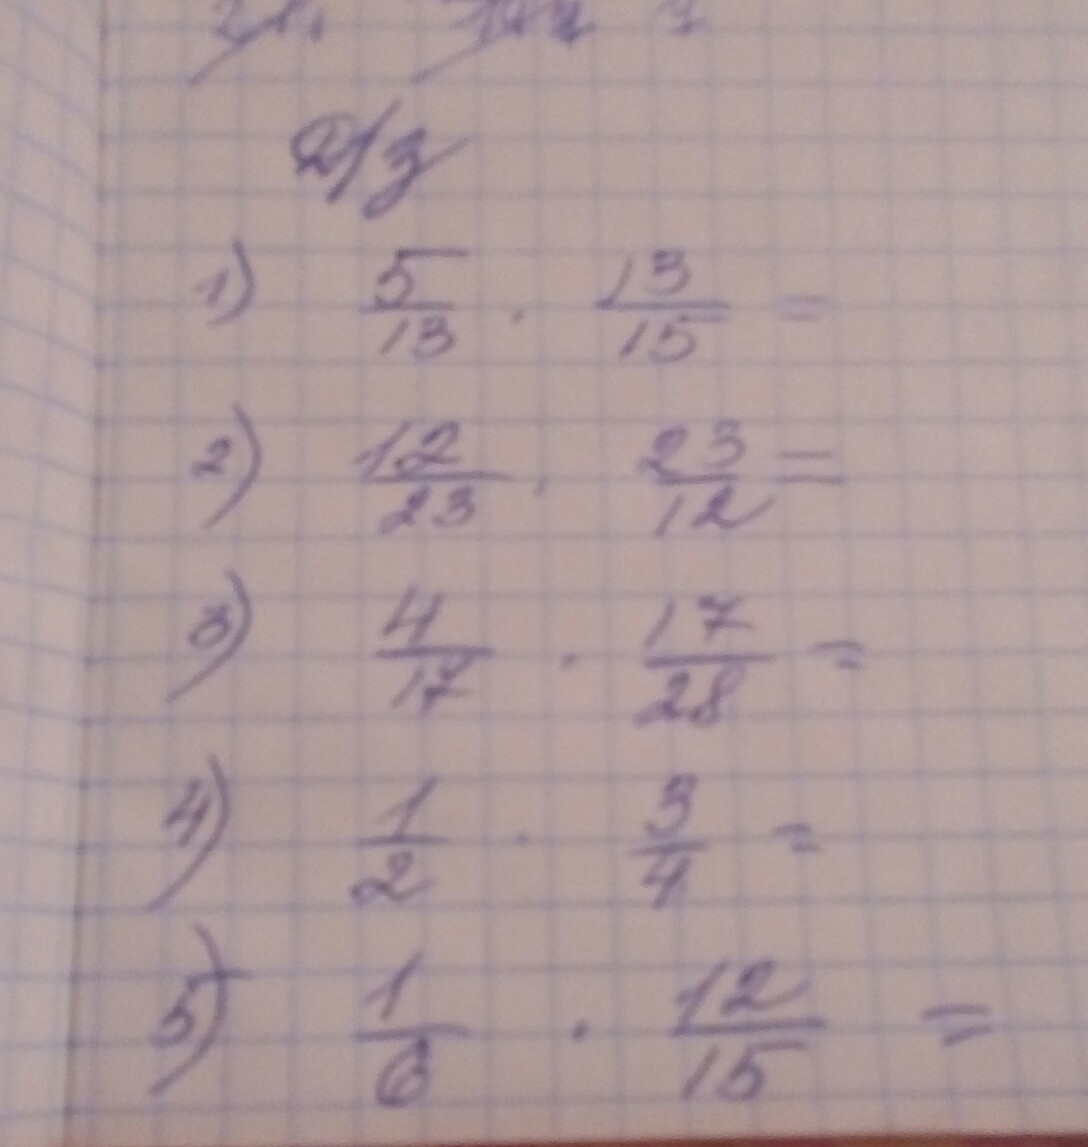 Д/з
1) 5/13 · 13/15 =
2) 12/23 · 23/12 =
3) 4/17 · 17/28 =
4) 1/2 · 3/4 =
5) 1/6 · 12/15 =